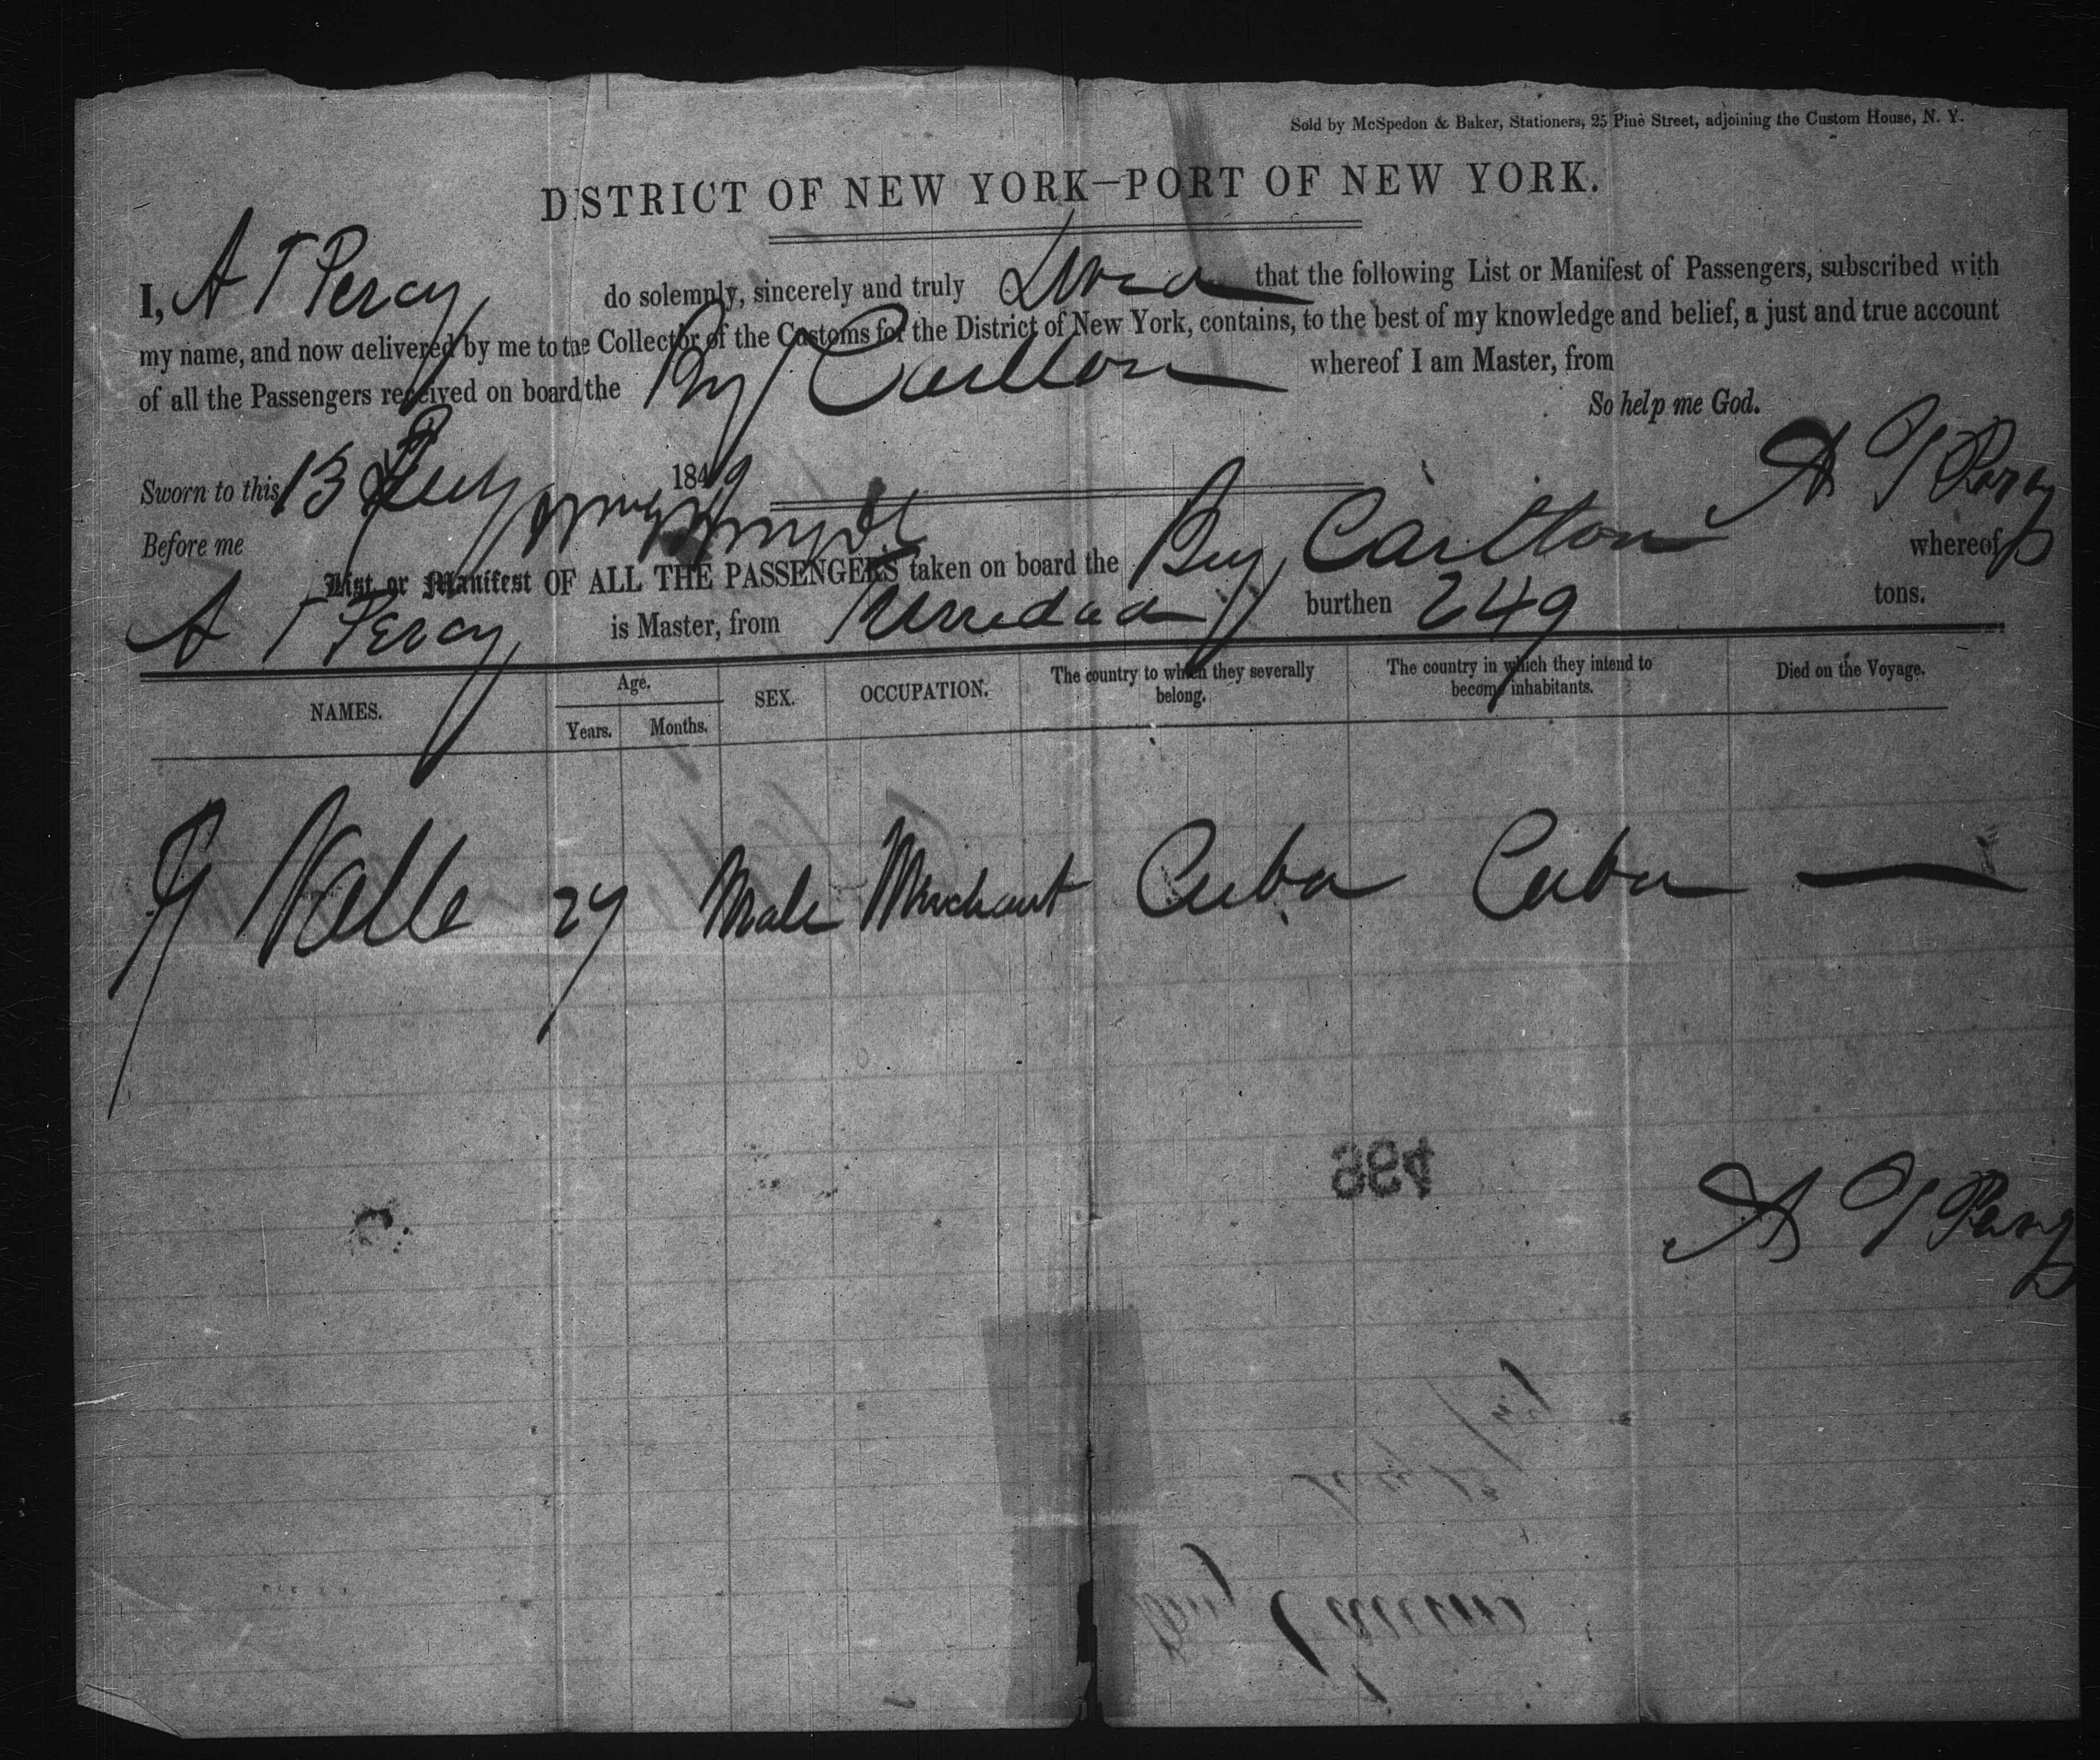 Sold by McSpedon & Baker, Stationers, 25 Pine Street, adjoining the Custom House, N. Y.
DISTRICT OF NEW YORK—PORT OF NEW YORK.
I, A T Percy do solemnly, sincerely and truly that the following List or Manifest of Passengers, subscribed with
my name, and now delivered by me to the Collector of the Customs for the District of New York, contains, to the best of my knowledge and belief, a just and true account
of all the Passengers received on board the Carlton whereof I am Master, from
So help me God.
Sworn to this 13 1849 A T Percy
Before me
List or Manifest OF ALL THE PASSENGERS taken on board the Carlton whereof
A T Percy is Master, from burthen 249 tons.
NAMES. Age. Years. Months. SEX. OCCUPATION. The country to which they severally belong. The country in which they intend to become inhabitants. Died on the Voyage.
Valle 27 Male Merchant Cuba Cuba —
884
A T Percy